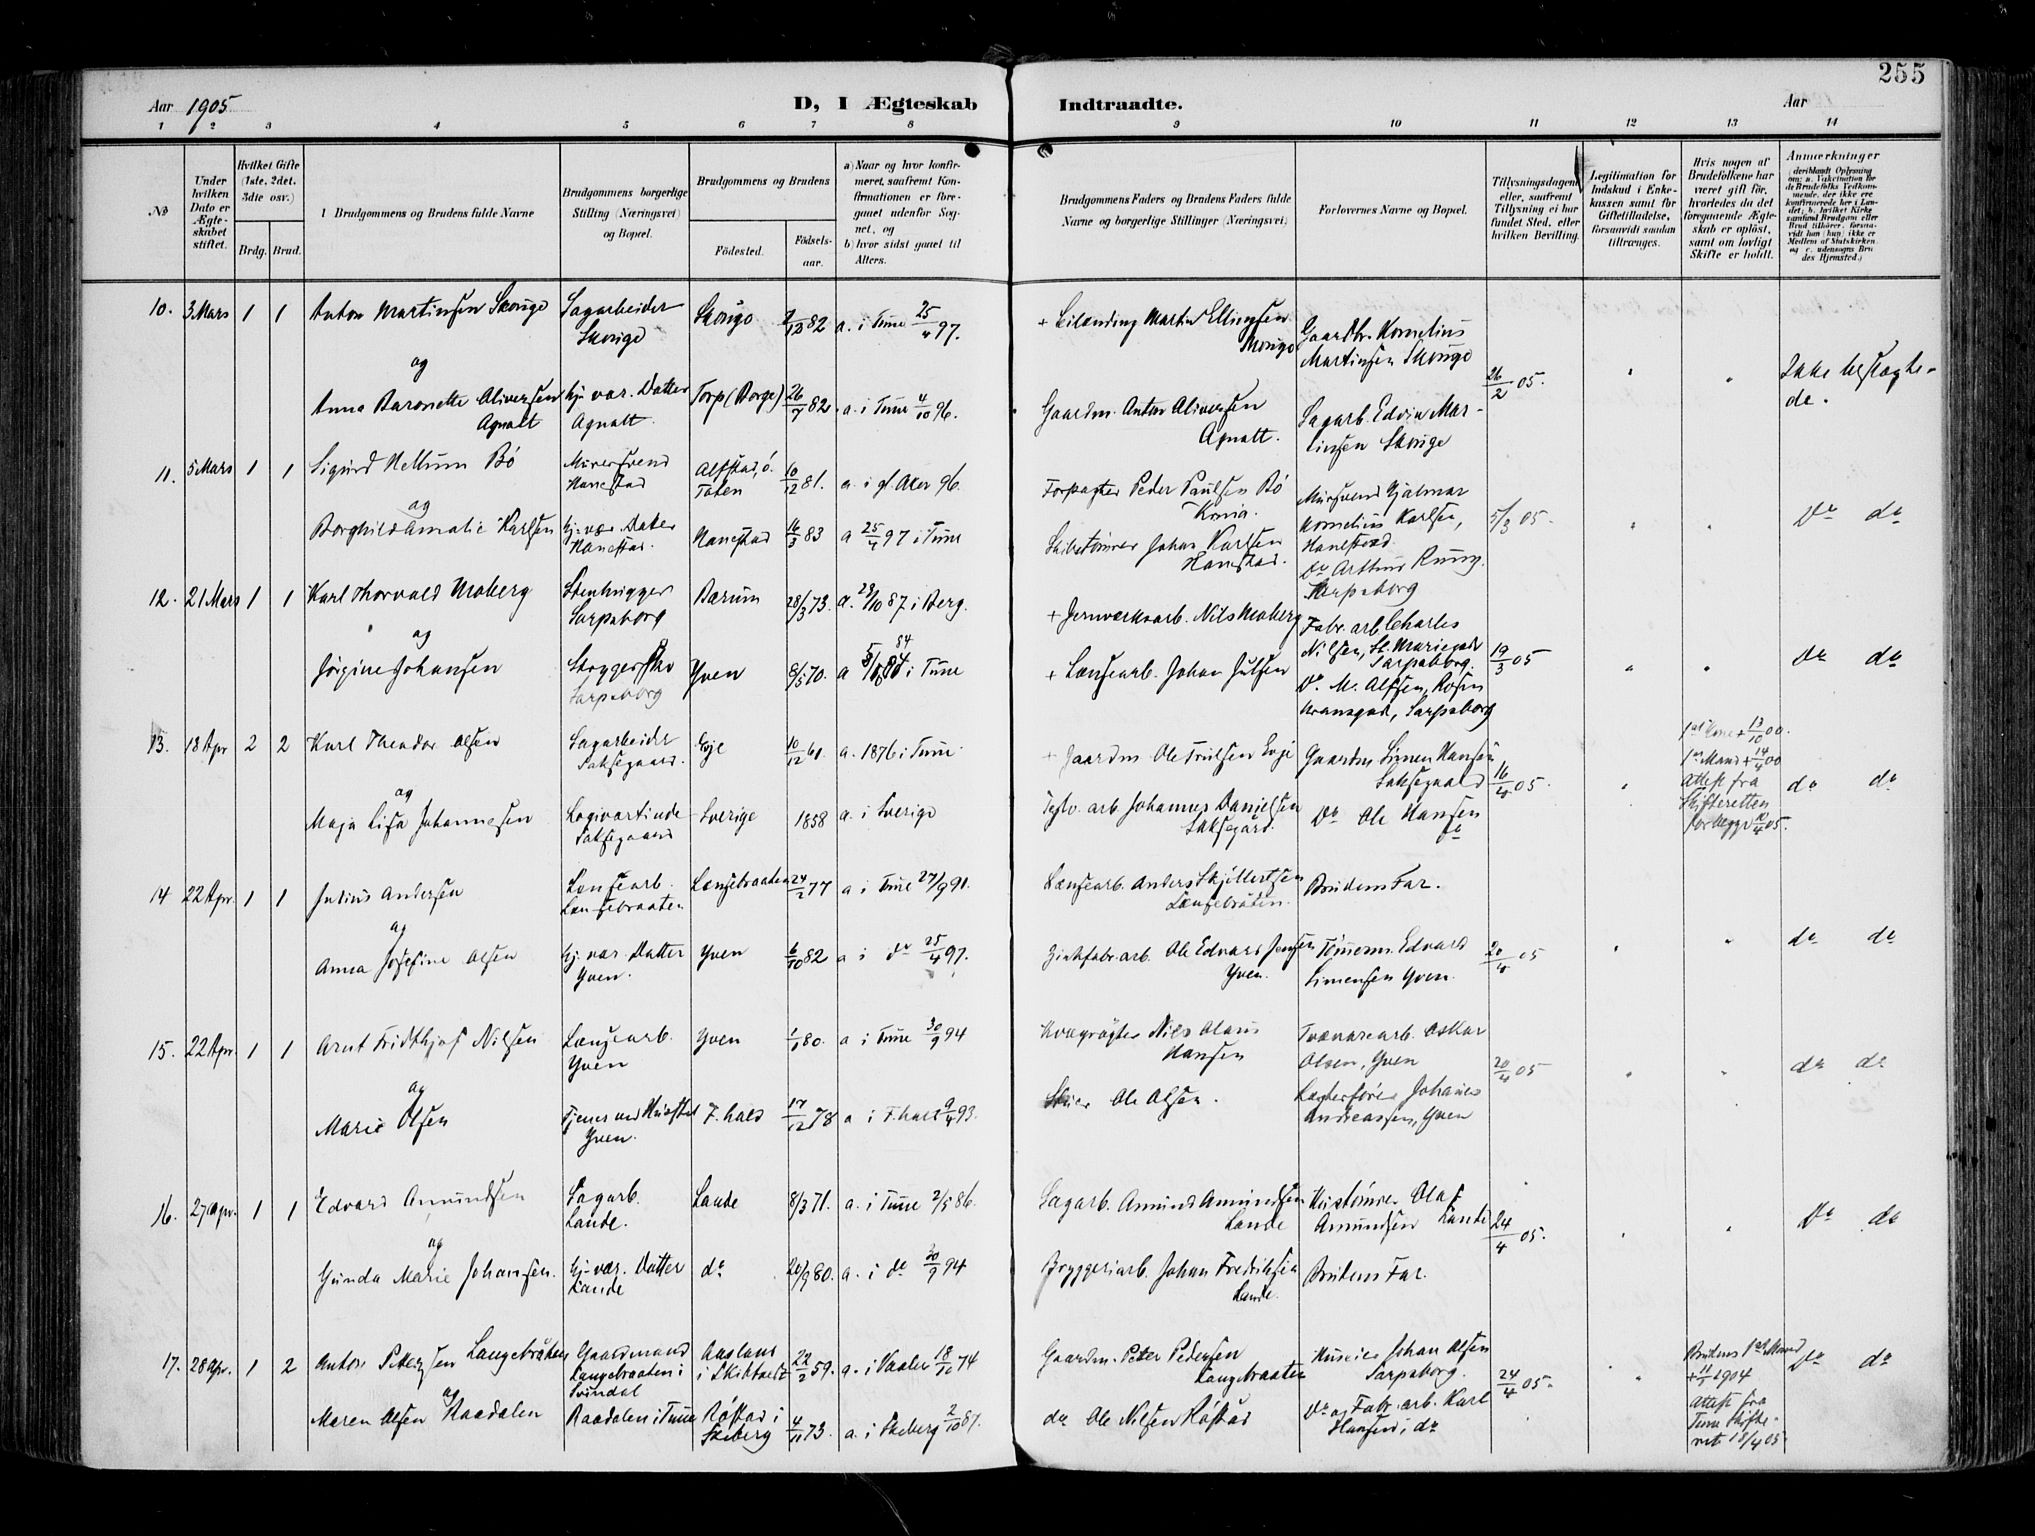 255
Aar 1905 D, I Ægteskab Indtraadte. Aar
1 2 3 4 5 6 7 8 9 10 11 12 13 14
No
Under hvilken Dato er Ægteskabet stiftet.
Hvilket Gifte (1ste, 2det, 3die osv.)
Brdg. Brud.
Brudgommens og Brudens fulde Navne
Brudgommens borgerlige Stilling (Næringsvei) og Bopæl.
Brudgommens og Brudens
Fødested. Fødselsaar.
a) Naar og hvor konfirmeret, saafremt Konfirmationen er foregaaet udenfor Sognet, og
b) hvor sidst gaaet til Alters.
Brudgommens Faders og Brudens Faders fulde Navne og borgerlige Stillinger (Næringsvei)
Forlovernes Navne og Bopæl.
Tillysningsdagene eller, saafremt Tillysning ei har fundet Sted, efter hvilken Bevilling.
Legitimation for Indskud i Enkekassen samt for Giftetilladelse, forsaavidt saadan tiltrænges.
Hvis nogen af Brudefolkene har været gift før, hvorledes da det foregaaende Ægteskab er opløst, samt om lovligt Skifte er holdt.
Anmærkninger
10. 3 Mars 1 1 Anton Martinsen Skonge Sagarbeider Skonge 82 a. i Tune 25/4 97. + Martin Ellingsen Gaardbr. Kornelius
Skonge Skonge Martinsen Skonge
og 26/2 05. Ikke beslægte-
Anna Baronette Oliversen Hj. vær. Datter Torp (Borge) 26/7 82. a. i Tune 4/10 96. Gaardm. Anton Oliversen Sagarb. Edvin Mar- de.
Agnalt Agnalt. Agnalt. tinsen Skonge
11. 5 Mars 1 1 Sigurd Hellum Bö Murersvend Alfstad, ö. 10/12 81. a. i gl. Aker 96. Forpagter Peder Paulsen Bö Mursvend Hjalmar
Hanestad Toten Krnia. Kornelius Karlsen,
og 5/3 05. Do do
Borghild Amalie Karlsen Hj. vær Dater Hanestad 16/3 83 a 25/4 97 i Tune Skibstömrer Johan Karlsen Hanestad
Hanestad. Hanestad. Do Arthur Rung.
Sarpsborg
12. 21 Mars 1 1 Karl Thorvald Moberg Stenhugger Bærum 28/3 73. a. /10 87 i Berg. + Jernverksarb. Nils Moberg Fabr. arb Charles
Sarpsborg Nilsen, St. Mariegad
og Sarpsborg. 19/3 05 Do do
Jörgine Johansen Sarpsborg Yven 8/5 70. a 84 i Tune + Lænsearb. Johan Julsen Do M. Alfsen, Rosen
kransgad, Sarpsborg
13. 18 Apr 2 2 Karl Theodor Olsen Sagarbeider Evje 10/12 61. a. 1876 i Tune. + Gaardm Ole Truelsen Evje Gaardm Simen Hansen 1ste Kone + 13/10 00.
Saksegaard. Saksegaard 16/4 05. 1ste Mand + 14/4 00
og Attest fra do do
Maja Lisa Johannesen Logivertinde Sverige 1858 a. i Sverige Teglv. arb Johannes Danielsen Do Ole Hansen Skifteretten
Saksegaard Saksegård. do for begge 10/4 05.
14 22 Apr. 1 1 Julius Andersen Lænsearb. Lænsebraaten 24/2 77 a i Tune 27/9 91. Lænsearb. Anders Skjillertsen Brudens Far.
Lænsebraaten Lænsebråten.
og
Anna Josefine Olsen Hj. vær. Datter Yven 6/10 82 a i do 25/4 97. Zinkfabr. arb. Ole Edvard Jensen Tömerm. Edvard 20/4 05 do do
Yven. Yven. Simensen Yven.
15. 22 Apr. 1 1 Arnt Fridthjof Nilsen Lænsearb. Yven 80. a i Tune 30/9 94 Kvægrögter Nils Olaus Trævarearb. Oskar
Yven Hansen Olsen, Yven 20/4 05 do do
og
Marie Olsen Yven. F. hald 17/12 78 a i F. hald 9/4 93. Ole Olsen. Johanes
Andreassen, Yven
16. 27 Apr. 1 1 Edvard Amundsen Sagarb. Lande 8/3 71. a. i Tune 2/5 86. Sagarb. Amund Amundsen Hustömrer Olaf
Lande. Lande Amundsen Lande 24/4 05. Do do
og
Gunda Marie Johansen. Hj. vær. Datter do 20/9 80. a. i do 30/9 94 Bryggeriarb. Johan Fredriksen Brudens Far.
Lande Lande.
17. 28 Apr. 1 2 Anton Pettersen Langebråten Gaardmand Aaslund 22/2 59. a. i Vaaler 18/10 74 Gaardm. Peter Pedersen Huseier Johan Olsen Brudens 1ste Mand Do do
Langebraaten i i Skibtvedt Langebraaten Sarpsborg. 24/4 05. + 11/2 1904
Svindal Attest fra
og
Maren Olsen Raadalen Raadalen i Tune Röstad i 4/11 73. a. i Skeberg 2/10 87. do Ole Nilsen Röstad Do og Fabr. arb. Karl Tune Skifte-
Skeberg Hansen i do ret 18/4 05